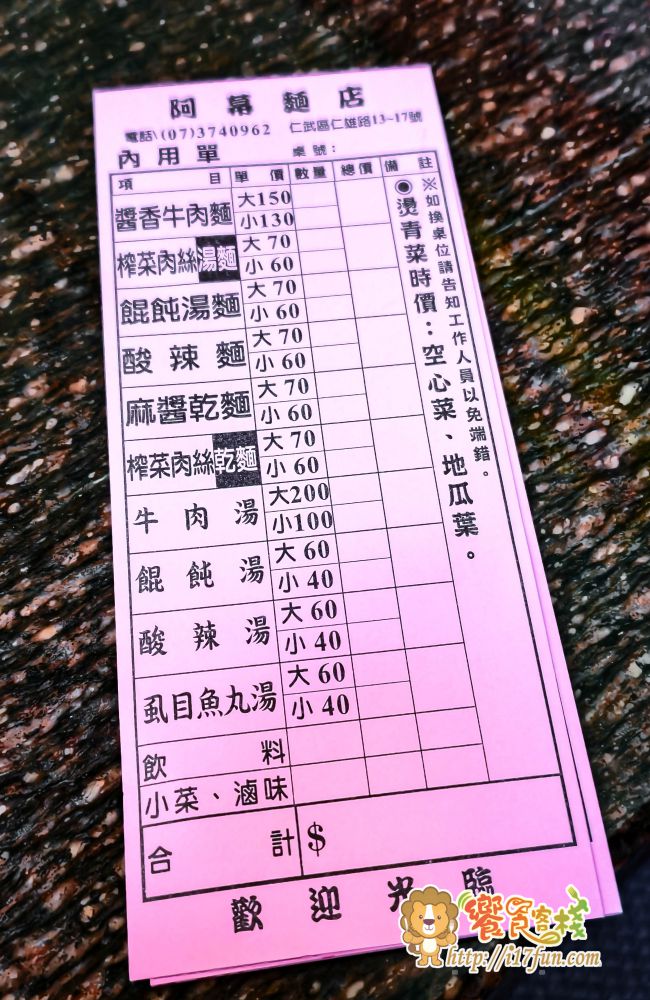 阿幕麵店
電話\(07)3740962 仁武區仁雄路13~17號
內用單 桌號:
項目 單價 數量 總價 備註
醬香牛肉麵 大150
小130
榨菜肉絲湯麵 大 70
小 60
餛飩湯麵 大 70
小 60
酸辣麵 大 70
小 60
麻醬乾麵 大 70
小 60
榨菜肉絲乾麵 大 70
小 60
牛肉湯 大200
小100
餛飩湯 大 60
小 40
酸辣湯 大 60
小 40
虱目魚丸湯 大 60
小 40
飲料
小菜、滷味
合計 $
※如換桌位請告知工作人員以免端錯。
◉燙青菜時價:空心菜、地瓜葉。
歡迎光臨
饗食客棧
http://i17fun.com